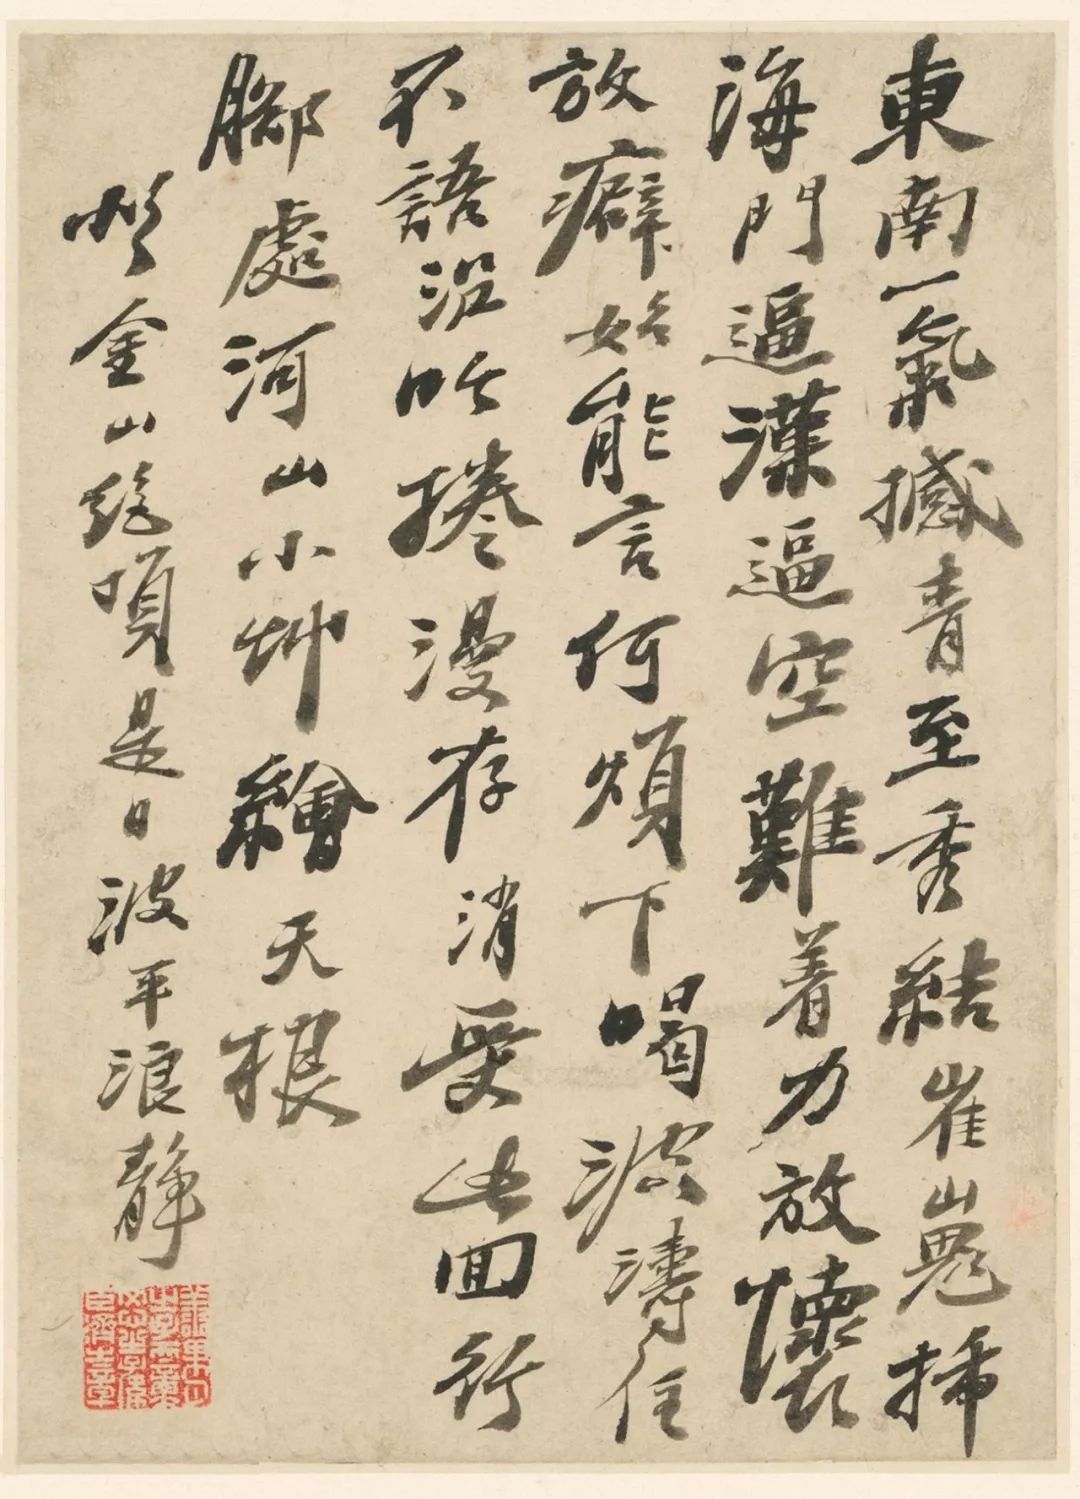 東南一氣撼青至秀結崔嵬插
海門逼漢逼空難着力放懷
放癖始能言何煩下喝波濤住
不語沿捲漫存消受此囬行
腳處河山小艸繪天根
登金山絕頂是日波平浪靜